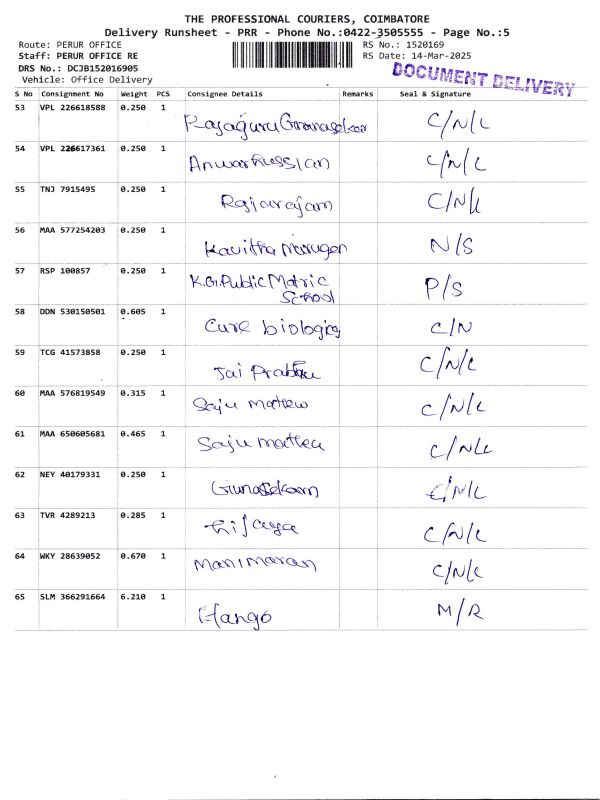 THE PROFESSIONAL COURIERS, COIMBATORE
Delivery Runsheet - PRR - Phone No.:0422-3505555 - Page No.:5
Route: PERUR OFFICE RS No.: 1520169
Staff: PERUR OFFICE RE RS Date: 14-Mar-2025
DRS No.: DCJB152016905
Vehicle: Office Delivery
DOCUMENT DELIVERY
S No Consignment No Weight PCS Consignee Details Remarks Seal & Signature
53 VPL 226618588 0.250 1 C/N/L
54 VPL 226617361 0.250 1 Anwarhussian C/N/L
55 TNJ 7915495 0.250 1 Rajarajam C/N/L
56 MAA 577254203 0.250 1 Kavitha Murugan N/S
57 RSP 100857 0.250 1 K.G.Public Matric P/S
School
58 DDN 530150501 0.605 1 Cure biologics C/N
59 TCG 41573858 0.250 1 Jai Prabhu C/N/L
60 MAA 576819549 0.315 1 Saju mattew C/N/L
61 MAA 650605681 0.465 1 Saju matteu C/N/L
62 NEY 40179331 0.250 1 C/N/L
63 TVR 4289213 0.285 1 C/N/L
64 WKY 28639052 0.670 1 Manimaran C/N/L
65 SLM 366291664 6.210 1 Hango M/R